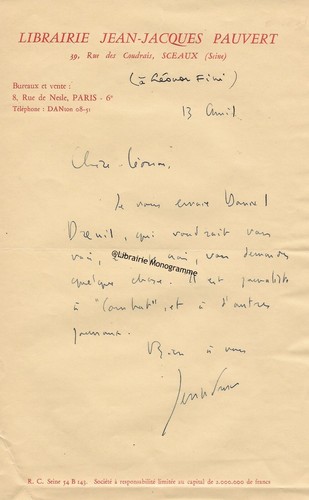 LIBRAIRIE JEAN-JACQUES PAUVERT
39, Rue des Coudrais, SCEAUX (Seine)
Bureaux et vente :
8, Rue de Nesle, PARIS - 6e
Téléphone : DANton 08-51
(à Léonor Fini)
13 Avril.
Chère Léonor,
Je vous envoie Daniel
qui voudrait vous
voir, vous demander
quelque chose. Il est journaliste
à "Combat", et à d'autres
journaux.
Bien à vous
@Librairie Monogramme
R. C. Seine 54 B 143. Société à responsabilité limitée au capital de 2.000.000 de francs